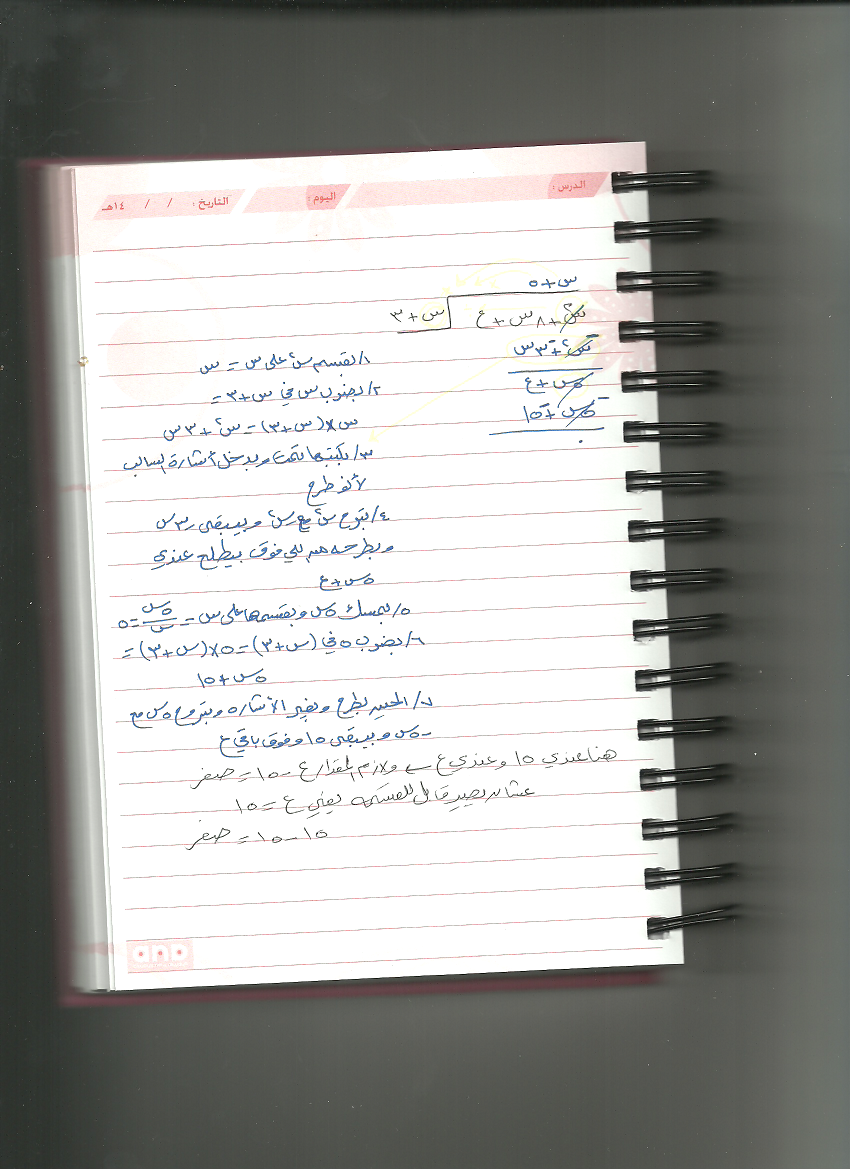 الدرس : اليوم : التاريخ : / / ١٤هـ
س + ٥
س + ٣ س٢ + ٨ س + ع
س٢ + ٣ س
٥س + ع
٥س + ١٥
٠
١/ بقسم س٢ على س = س
٢/ بضرب س في س + ٣ =
س × (س + ٣) = س٢ + ٣ س
٣/ بكتبها تحت وبدخل أشارة السالب
لأنو طرح
٤/ بتروح س٢ مع س٢ وبيبقى ٣س
وبطرحه من اللي فوق بيطلع عندي
٥س + ع
٥/ بمسك ٥س وبقسمها على س = ٥س/س = ٥
٦/ بضرب ٥ في (س + ٣) = ٥ × (س + ٣) =
٥س + ١٥
٧/ الحين بطرح وبغير الأشاره وبتروح ٥س مع
-٥س وبيبقى ١٥ وفوق باقي ع
هنا عندي ١٥ وعندي ع ولازم المقدار ع - ١٥ = صفر
عشان يصير قابل للقسمه يعني ع = ١٥
١٥ - ١٥ = صفر
and